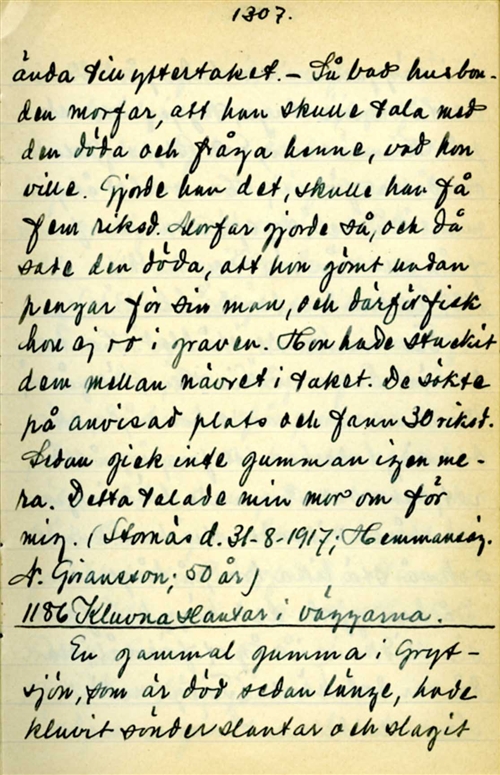 1307.
ända till yttertaket. – Så bad husbon-
den morfar, att han skulle tala med
den döda och fråga henne, vad hon
ville. Gjorde han det, skulle han få
fem riksd. Morfar gjorde så, och då
sade den döda, att hon gömt undan
pengar för sin man, och därför fick
hon ej ro i graven. Hon hade stuckit
dem mellan nävret i taket. De sökte
på anvisad plats och fann 30 riksd.
Sedan gick inte gumman igen me-
ra. Detta talade min mor om för
mig. (Stornäs d. 31-8-1917; Hemmansäg.
N. Göransson; 50 år)
1186 Kluvna slantar i väggarna.
En gammal gumma i Gryt-
sjön, som är död sedan länge, hade
kluvit sönder slantar och slagit